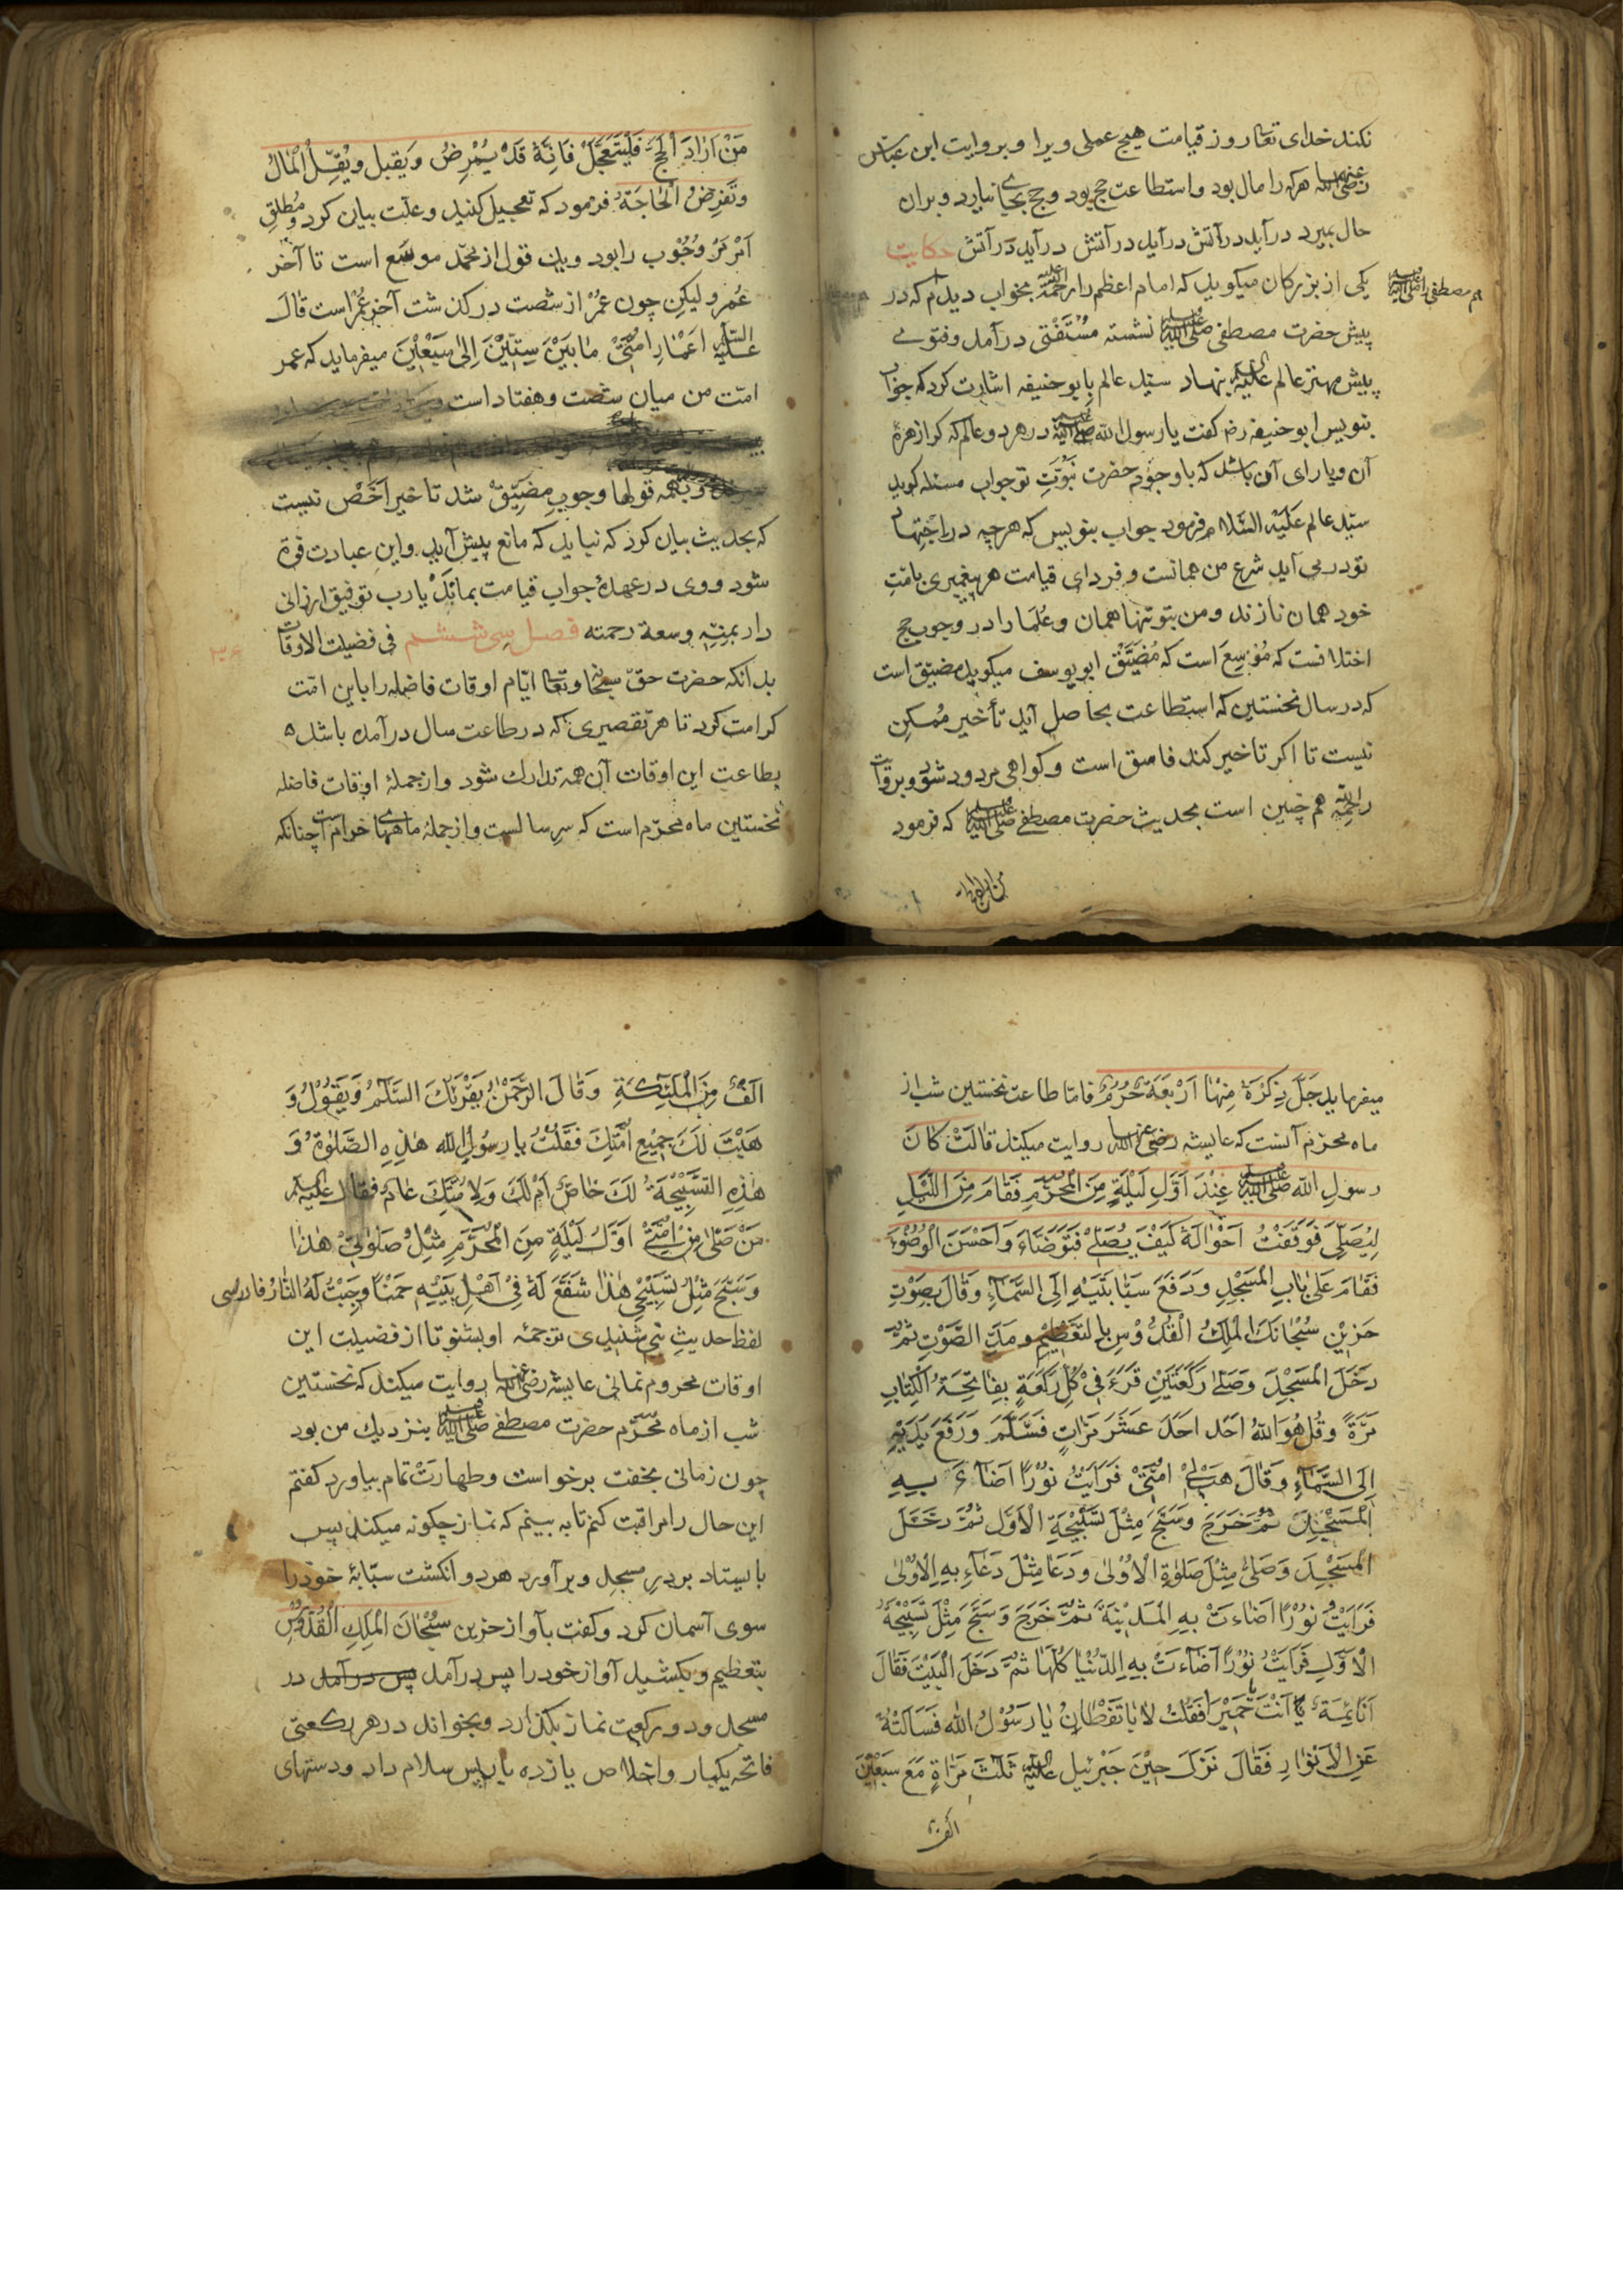 نکند خدای تعالی روز قیامت هیچ عملی ویرا و بروایت ابن عباس
رضی الله عنهما هرکه را مال بود و استطاعت حج بود و حج بجای نیارد و بران
حال بمیرد درآید درآتش درآید درآتش درآید درآتش حکایت
یکی از بزرکان میکوید که امام اعظم را رحمة الله علیه بخواب دیدم که در
پیش حضرت مصطفی صلی الله علیه وسلم نشسته مُسْتَفْتی درآمد و فتوی
پیش مهتر عالم علیه السلام بنهاد سید عالم بابو حنیفه اشارت کرد که جواب
بنویس ابو حنیفه رض کفت یا رسول الله صلی الله علیه وسلم در هر دو عالم که را زهرهٔ
آن و یارای آن باشد که با وجود حضرت نبوّتِ تو جواب مسئله کوید
سید عالم علیه السلام فرمود جواب بنویس که هرچه در اجتهاد
تو درمی آید شرع من همانست و فردای قیامت هر پیغمبری بامّتِ
خود همان نازند و من بتو تنها همان و علما را در وجوب حج
اختلافست که مُوَسِع است که مُضَیَّق ابو یوسف میکوید مضیّق است
که در سال نخستین که استطاعت بحاصل آید تأخیر ممکن
نیست تا اکر تاخیر کند فاسق است و کواهی مردود شود و بروایت
هم چنین است بحدیث حضرت مصطفی صلی الله علیه وسلم که فرمود
من اراد
مَنْ اَرَادَ الْحَجَّ فَلْیَتَعَجَّلْ فَاِنَّهُ قَدْ یُمْرِضُ وَیقبل ویُقِلُّ الْمَالُ
وتَفرِضُ الْحَاجَةُ فرمود که تعجیل کنید و علّت بیان کرد و مُطلقِ
اَمْر مَرْ وُجُوب را بود وین قول از محمّد موسّع است تا آخر
عُمر ولیکن چون عُمُر از شصت درکذشت آخِرِ عُمُر است قَالَ
عَلَیْهِ السَّلَامُ اَعْمَارِ اُمَّتِیْ مَا بَیْنَ سِتِّیْنَ اِلیٰ سَبْعِیْنَ میفرماید که عمر
امّت من میان شصت و هفتاد است
و بهمه قولها وجوبِ مضیّق شد تاخیر رخص نیست
که بحدیث بیان کرد که نباید که مانع پیش آید و این عبادت فوت
شود و وی در عهدهٔ جواب قیامت بماند یا رب توفیق ارزانی
دار بمنّه وسعة رحمته فصل سی ششم فی فضیلت الاوقات
بدانکه حضرت حقّ سبحانه وتعالی ایّام اوقات فاضله را باین امّت
کرامت کرد تا هر تقصیری که در طاعت سال درآمده باشد
بطاعت این اوقات آن همه تدارک شود و از جملهٔ اوقات فاضله
نخستین ماه محرّم است که سر سالست و از جملهٔ ماههای حرام است چنانکه
میفرماید جَلَّ ذِکْرُهٗ مِنْهَا اَرْبَعَةٌ حُرُمٌ فامّا طاعت نخستین شب از
ماه محرّم آنست که عایشه رضی الله عنها روایت میکند قالَتْ کَانَ
رسول الله صلی الله علیه وسلم عِنْدَ اَوَّلِ لَیْلَةٍ مِنَ الْمُحَرَّمِ فَقَامَ مِنَ اللَّیْلِ
لِیُصَلِّیَ فَوَقَفْتُ اَحْوَالَهٗ کَیْفَ یُصَلِّیْ فَتَوَضَّاءَ وَاَحْسَنَ الْوُضُوْءَ
فَقَامَ عَلیٰ بَابِ الْمَسْجِدِ وَرَفَعَ سَبَّابَتَیْهِ اِلَی السَّمَآءِ وَقَالَ بِصَوْتٍ
حَزِیْنٍ سُبْحَانَكَ الْمَلِكُ الْقُدُّوْسِ بِالتَّعْظِیْمِ ومَدِّ الصَّوْتِ ثُمَّ
دَخَلَ الْمَسْجِدَ وَصَلّٰی رَکْعَتَیْنِ قَرَءَ فِیْ کُلِّ رَکْعَةٍ بِفَاتِحَةِ الْکِتَابِ
مَرَّةً وَقُل هُوَ اللّٰهُ اَحَد اَحَدَ عَشَرَ مَرَّاتٍ فَسَلَّمَ وَرَفَعَ یَدَیْهِ
اِلَی السَّمَآءِ وَقَالَ هَبْ لِیْ اُمَّتِیْ فَرَاَیْتُ نُوْرًا اَضَاءَ بِهِ
الْمَسْجِدَ ثُمَّ خَرَجَ وَسَبَّحَ مِثْلَ تَسْبِیْحَةِ الْاَوَّلِ ثُمَّ دَخَلَ
الْمَسْجِدَ وَصَلّٰی مِثْلَ صَلٰوةِ الْاُوْلیٰ وَدَعَا مِثْلَ دُعَآءِ بِهِ الْاُوْلیٰ
فَرَاَیْتُ نُوْرًا اَضَاءَتْ بِهِ الْمَدِیْنَةَ ثُمَّ خَرَجَ وَسَبَّحَ مِثْلَ تَسْبِیْحَةِ
الْاَوَّلِ فَرَاَیْتُ نُوْرًا اَضَاءَتْ بِهِ الدُّنْیَا کُلَّهَا ثُمَّ دَخَلَ الْبَیْتَ فَقَالَ
اَنَائِمَةٌ اَنْتَ یَا حُمَیْرَا فَقُلْتُ لَا یَقْظَانُ یَا رَسُوْلُ الله فَسَاَلْتُهٗ
عَنِ الْاَنْوَارِ فَقَالَ نَزَلَ حِیْنَ جَبْرَئِیل عَلَیْهِ السَّلَام ثَلٰثَ مَرَّاةٍ مَعَ سَبْعِیْنَ
الف
اَلْفٌ مِنَ الْمَلٰئِکَةِ وَقَالَ الرَّحْمٰنُ یَقْرَئُكَ السَّلَمُ وَیَقُوْلُ وَ
هَبْتُ لَكَ جَمِیْعِ اُمَّتِكَ فَقُلْتُ یا رَسُولَ الله هٰذِهِ الصَّلٰوةُ وَ
هٰذِهِ التَّسْبِیْحَةُ لَكَ خَاصٌّ اَمْ لَكَ وَلِاُمَّتِكَ عَامٌّ فَقَالَ عَلَیْهِ السَّلَام
مَنْ صَلّٰی مِنْ اُمَّتِیْ اَوَّلَ لَیْلَةٍ مِنَ الْمُحَرَّمِ مِثْلُ صَلٰوتِیْ هٰذَا
وَسَبَّحَ مِثْلُ تَسْبِیْحِیْ هٰذَا شَفَّعَ لَهٗ فِیْ اَهْلِ بَیْتِهِ وَجَبَتْ لَهُ النَّارُ فارسی
لفظ حدیث نبی شنیدی ترجمهٔ او بشنو تا از فضیلت این
اوقات محروم نمانی عایشه رضی الله عنها روایت میکند که نخستین
شب از ماه محرّم حضرت مصطفی صلی الله علیه وسلم بنزدیك من بود
چون زمانی بخفت برخواست و طهارت تمام بیاورد کفتم
این حال را مراقبت کنم تا به بینم که نماز چکونه میکند پس
بایستاد بر درِ مسجد و برآورد هر دو انکشت سبّابهٔ خود را
سوی آسمان کرد وکفت بآواز حزین سُبْحَانَ الْمَلِكِ الْقُدُّوْسِ
بتعظیم وبکشید آواز خود را پس درآمد پس درآمد در
مسجد و دو رکعت نماز بکذارد وبخواند در هر رکعتی
فاتحه یکبار و اخلاص یازده بار پس سلام داد ودستهای